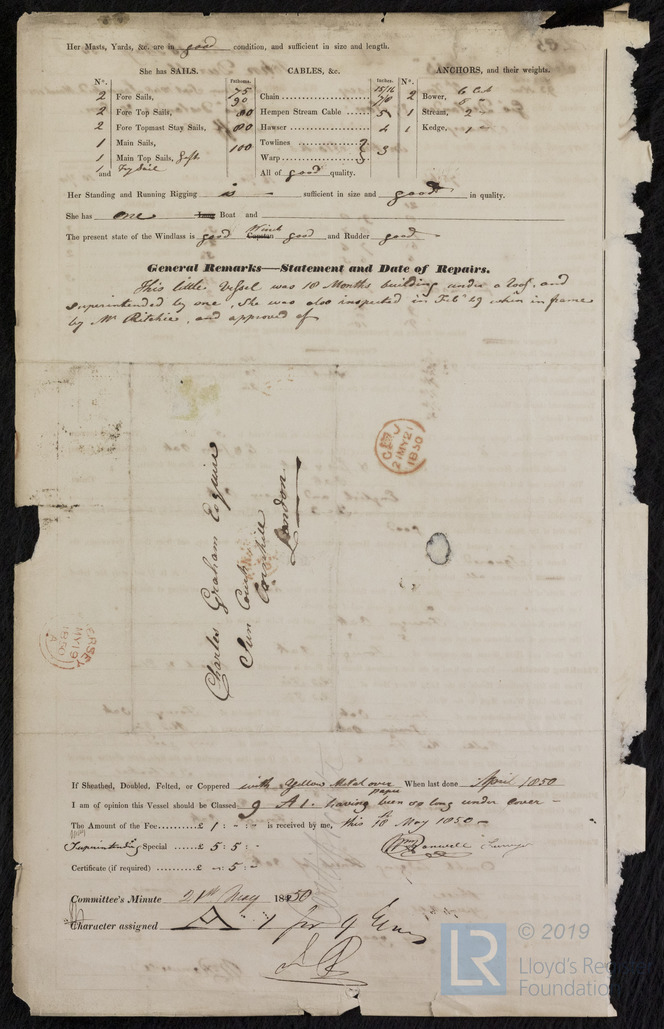 Her Masts, Yards, &c. are in good condition, and sufficient in size and length.
She has SAILS. CABLES, &c. ANCHORS, and their weights.
N°. Fathoms. Inches. N°.
2 Fore Sails, 75 Chain 15/16 2 Bower, 6 Cwt
90 7/8
2 Fore Top Sails, 80 Hempen Stream Cable 5 1 Stream, 2
2 Fore Topmast Stay Sails, 80 Hawser 4 1 Kedge, 1
1 Main Sails, 100 Towlines 3
1 Main Top Sails, Gaff Warp
1 and Try Sail All of good quality.
Her Standing and Running Rigging is sufficient in size and good in quality.
She has one Long Boat and
The present state of the Windlass is good Capstan Winch good and Rudder good
General Remarks—Statement and Date of Repairs.
This little Vessel was 18 Months building under a roof, and
superintended by one. She was also inspected in Feby 49 when in frame
by Mr Ritchie, and approved of
C J
21 MY 21
1850
Charles Graham Esquire
Sun Court
Cornhill
London
ERSEY
MY 19
1850
A
If Sheathed, Doubled, Felted, or Coppered with Yellow Metal over paper When last done April 1850
I am of opinion this Vessel should be Classed 9 A 1. having been so long under cover
The Amount of the Fee £ 1 : - : - is received by me, this 18 May 1850
Superintending Special £ 5 : 5 : -
Surveyor
Certificate (if required) £ - 5 : -
Committee's Minute 21st May 1850
Character assigned A 1 for 9 Years
© 2019
LR
Lloyd's Register
Foundation